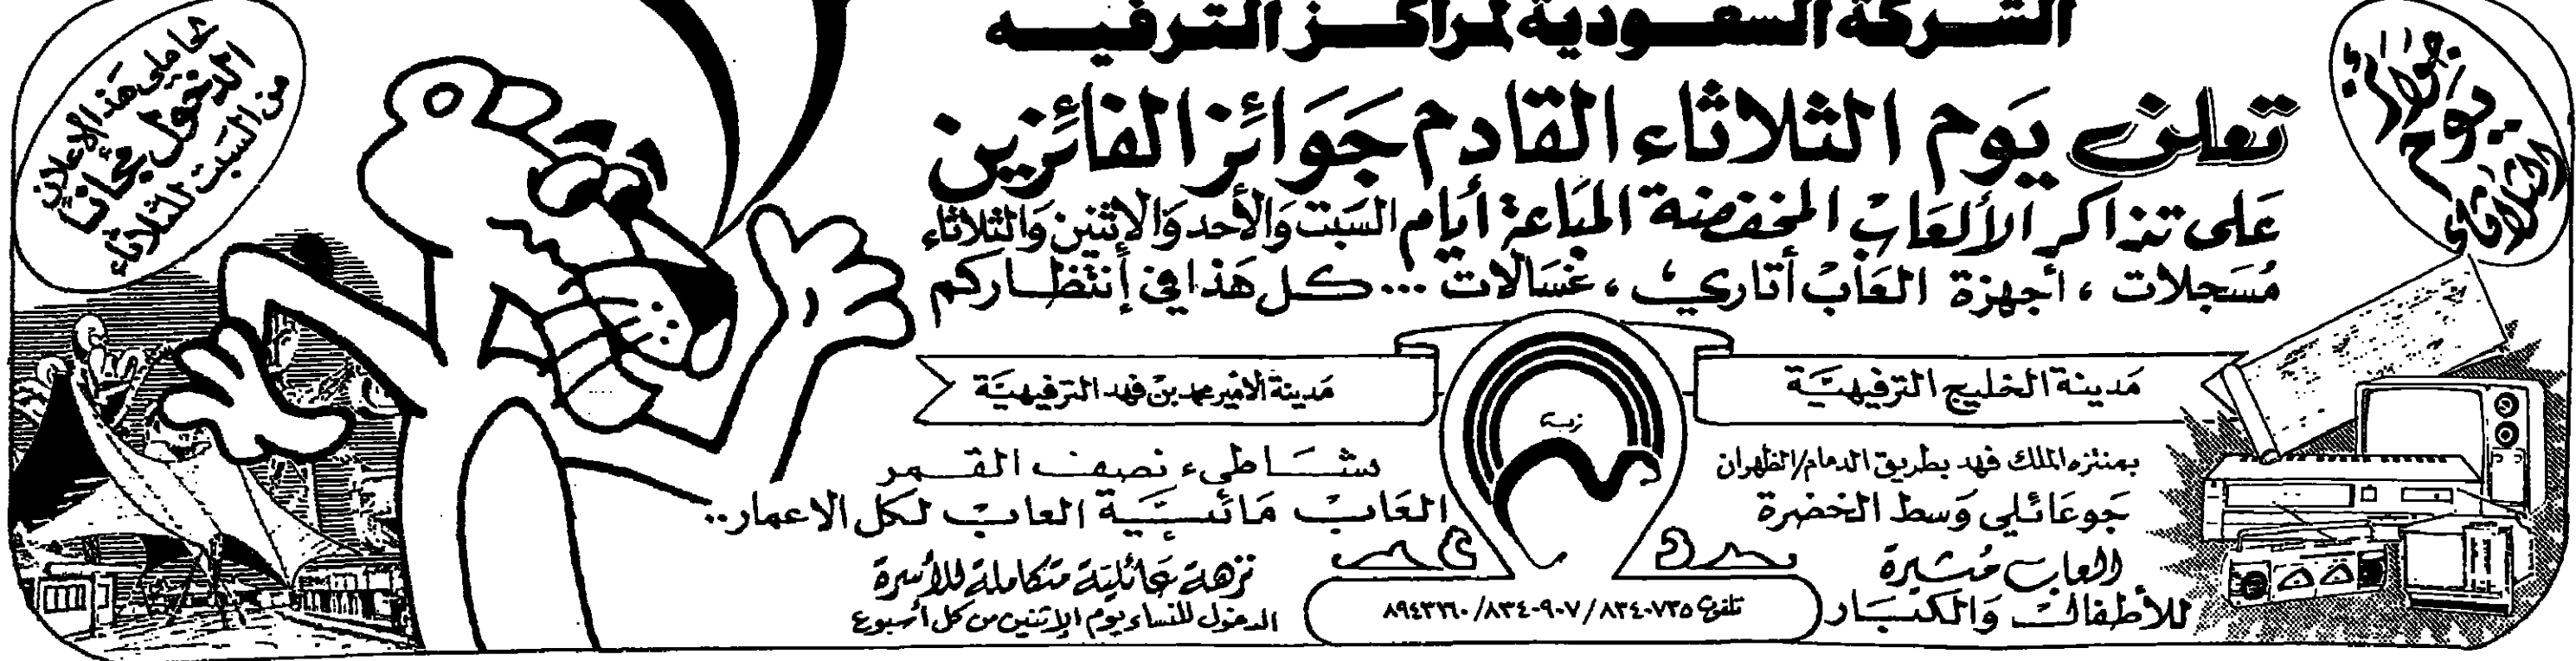 الشركة السعودية لمراكز الترفيه
جوائز
يوم
الثلاثاء
تعلن يوم الثلاثاء القادم جوائز الفائزين
على تذاكر الألعاب المخفضة المباعة أيام السبت والأحد والاثنين والثلاثاء
مسجلات ، أجهزة العاب أتاري ، غسالات ... كل هذا في إنتظاركم
لحاملي هذا الإعلان
الدخول مجانا
من السبت للثلاثاء
مدينة الخليج الترفيهية
بمنتزه الملك فهد بطريق الدمام/الظهران
جو عائلي وسط الخضرة
العاب مثيرة
للأطفال والكبار
مدينة الامير محمد بن فهد الترفيهية
شاطىء نصف القمر
العاب مائية العاب لكل الاعمار..
نزهة عائلية متكاملة للأسرة
الدخول للنساء يوم الإثنين من كل أسبوع
تلفون ٨٣٤٠٧٣٥ / ٨٣٤٠٩٠٧ / ٨٩٤٣٣٦٠